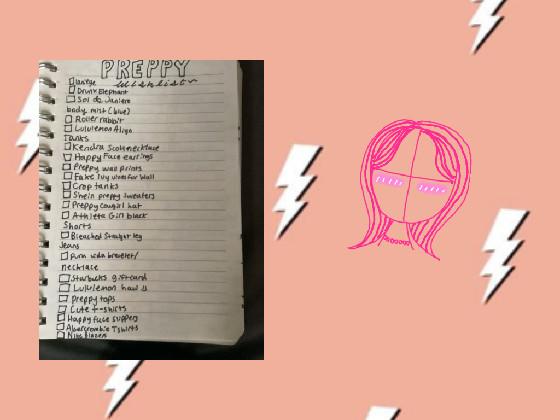 PREPPY
wishlist
laneige
Drunk Elephant
Sol de Janiero
body mist (blue)
Roller rabbit
Lululemon Align
Tanks
Kendra Scott necklace
Happy Face earrings
Preppy wall prints
Fake Ivy vines for wall
Crop tanks
Shein preppy sweaters
Preppy cowgirl hat
Athleta Girl black
Shorts
Bleached Straight leg
Jeans
pura vida bracelet/
necklace
Starbucks giftcard
Lululemon
preppy tops
Cute t-shirts
Happy face slippers
Abercrombie Tshirts
Nike blazers